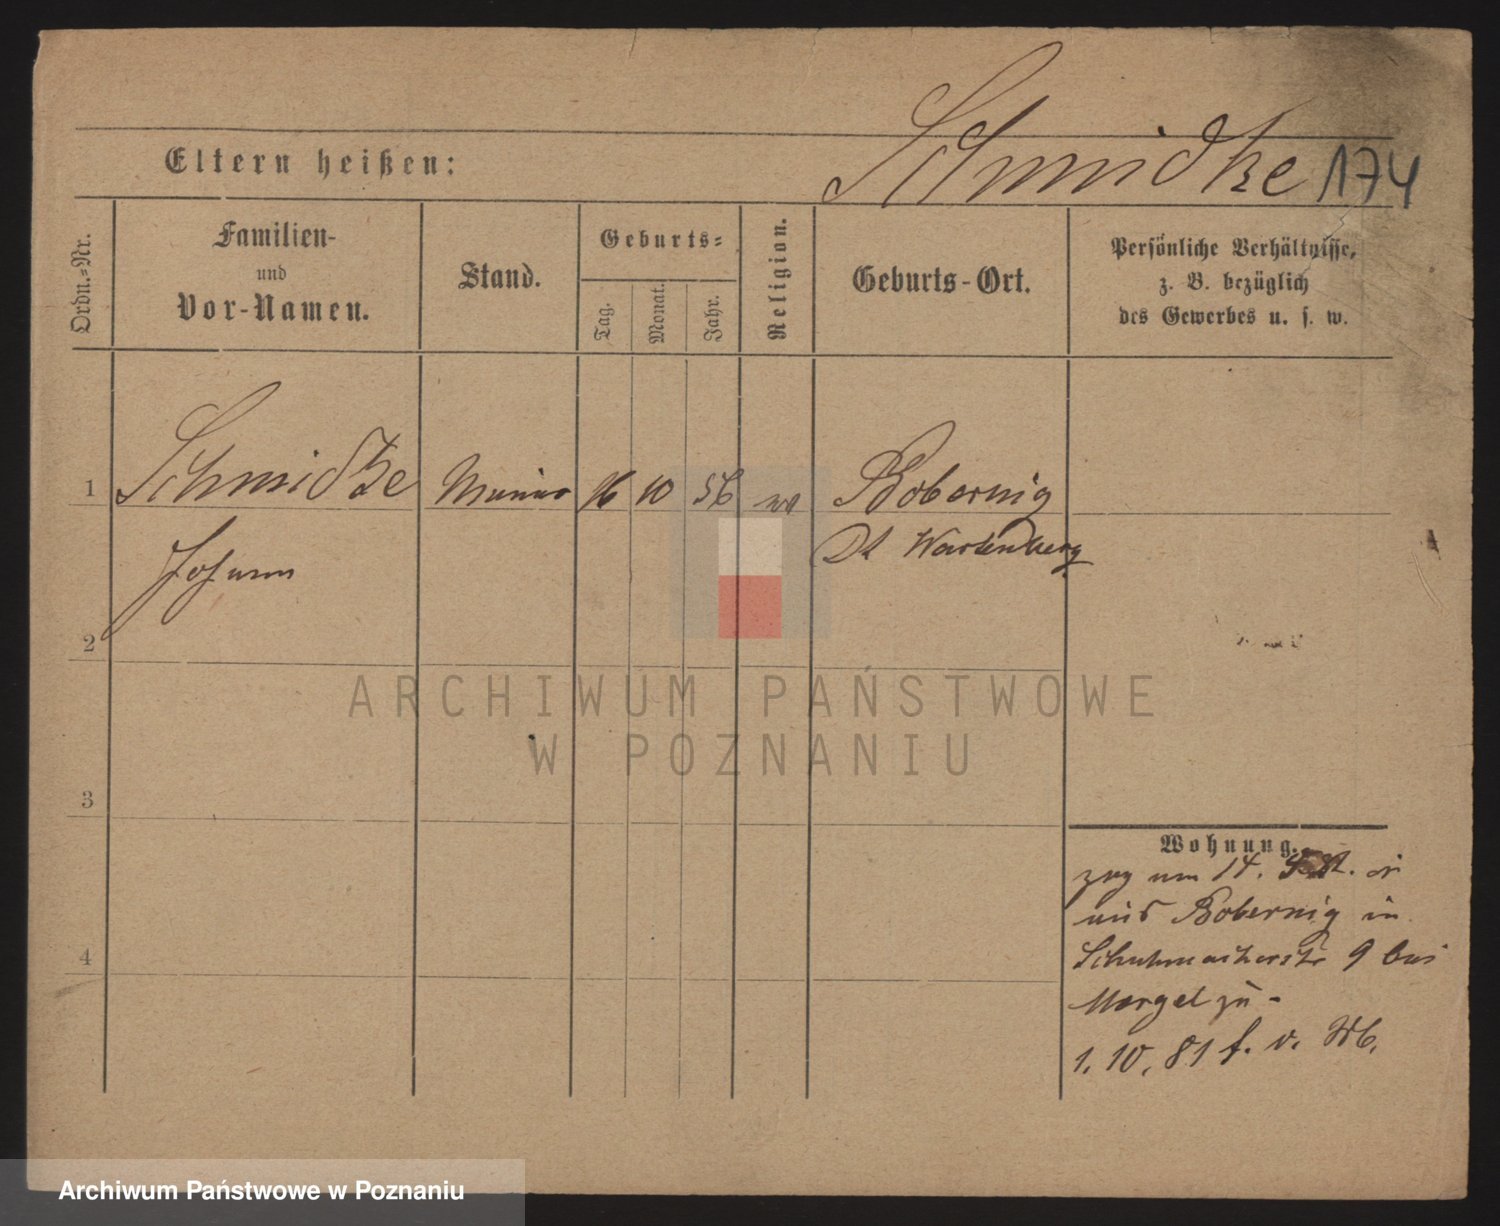 Schmidtke 174
Eltern heißen:
Ordn.=Nr.
Familien-
und
Vor-Namen.
Stand.
Geburts=
Tag.
Monat.
Jahr.
Religion.
Geburts-Ort.
Persönliche Verhältnisse,
z. B. bezüglich
des Gewerbes u. s. w.
1 Schmidtke 16 10 56 Bobernig
Johann Dt Wartenberg
2
3
4
Wohnung.
zog am 14.
aus Bobernig in
Schuhmacherstr 9 bei
Mergel zu -
1. 10. 81 f. v.
ARCHIWUM PAŃSTWOWE
W POZNANIU
Archiwum Państwowe w Poznaniu